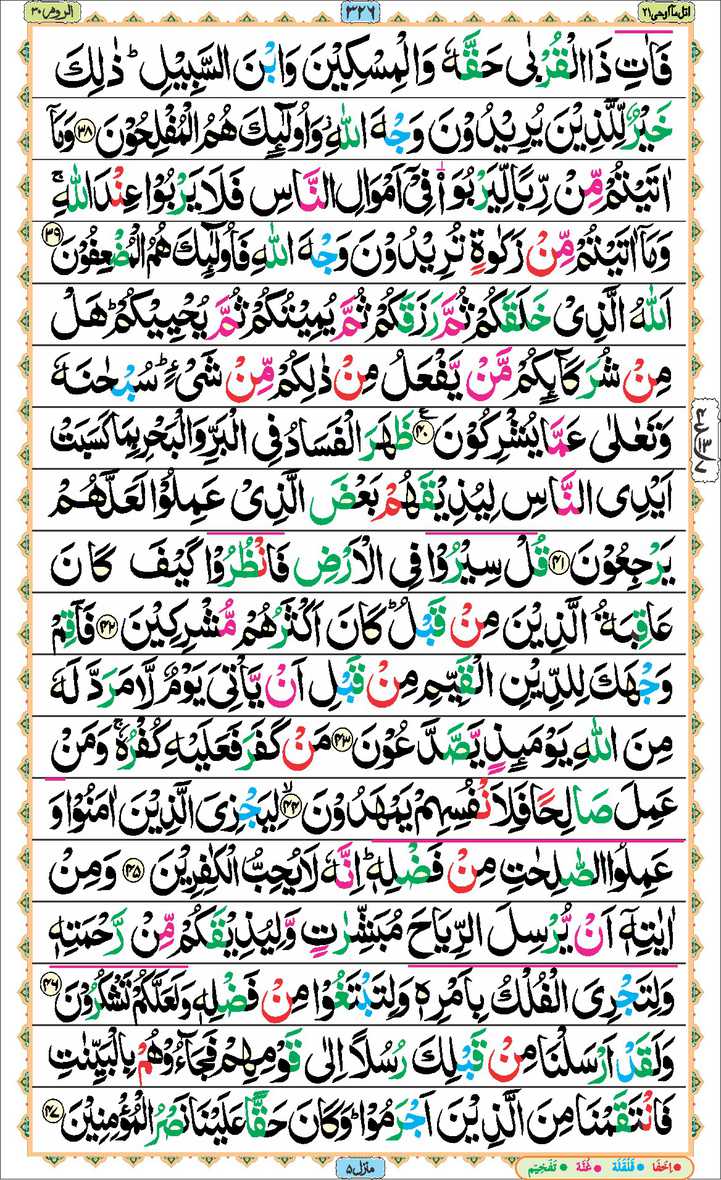 اتل مآ اوحی ۲۱ ۳۲۶ الروم ۳۰
فَاٰتِ ذَا الْقُرْبٰى حَقَّهٗ وَالْمِسْكِيْنَ وَابْنَ السَّبِيْلِ ؕ ذٰلِكَ
خَيْرٌ لِّلَّذِيْنَ يُرِيْدُوْنَ وَجْهَ اللّٰهِ ۫ وَاُولٰٓئِكَ هُمُ الْمُفْلِحُوْنَ ۝۳۸ وَمَاۤ
اٰتَيْتُمْ مِّنْ رِّبًا لِّيَرْبُوَا۠ فِيْۤ اَمْوَالِ النَّاسِ فَلَا يَرْبُوْا عِنْدَ اللّٰهِ ۚ
وَمَاۤ اٰتَيْتُمْ مِّنْ زَكٰوةٍ تُرِيْدُوْنَ وَجْهَ اللّٰهِ فَاُولٰٓئِكَ هُمُ الْمُضْعِفُوْنَ ۝۳۹
اَللّٰهُ الَّذِيْ خَلَقَكُمْ ثُمَّ رَزَقَكُمْ ثُمَّ يُمِيْتُكُمْ ثُمَّ يُحْيِيْكُمْ ؕ هَلْ
مِنْ شُرَكَآئِكُمْ مَّنْ يَّفْعَلُ مِنْ ذٰلِكُمْ مِّنْ شَيْءٍ ؕ سُبْحٰنَهٗ
وَتَعٰلٰى عَمَّا يُشْرِكُوْنَ ۝۴۰ ظَهَرَ الْفَسَادُ فِي الْبَرِّ وَالْبَحْرِ بِمَا كَسَبَتْ
اَيْدِي النَّاسِ لِيُذِيْقَهُمْ بَعْضَ الَّذِيْ عَمِلُوْا لَعَلَّهُمْ
يَرْجِعُوْنَ ۝۴۱ قُلْ سِيْرُوْا فِي الْاَرْضِ فَانْظُرُوْا كَيْفَ كَانَ
عَاقِبَةُ الَّذِيْنَ مِنْ قَبْلُ ؕ كَانَ اَكْثَرُهُمْ مُّشْرِكِيْنَ ۝۴۲ فَاَقِمْ
وَجْهَكَ لِلدِّيْنِ الْقَيِّمِ مِنْ قَبْلِ اَنْ يَّاْتِيَ يَوْمٌ لَّا مَرَدَّ لَهٗ
مِنَ اللّٰهِ يَوْمَئِذٍ يَّصَّدَّعُوْنَ ۝۴۳ مَنْ كَفَرَ فَعَلَيْهِ كُفْرُهٗ ۚ وَمَنْ
عَمِلَ صَالِحًا فَلِاَنْفُسِهِمْ يَمْهَدُوْنَ ۝۴۴ۙ لِيَجْزِيَ الَّذِيْنَ اٰمَنُوْا وَ
عَمِلُوا الصّٰلِحٰتِ مِنْ فَضْلِهٖ ؕ اِنَّهٗ لَا يُحِبُّ الْكٰفِرِيْنَ ۝۴۵ وَمِنْ
اٰيٰتِهٖۤ اَنْ يُّرْسِلَ الرِّيَاحَ مُبَشِّرٰتٍ وَّلِيُذِيْقَكُمْ مِّنْ رَّحْمَتِهٖ
وَلِتَجْرِيَ الْفُلْكُ بِاَمْرِهٖ وَلِتَبْتَغُوْا مِنْ فَضْلِهٖ وَلَعَلَّكُمْ تَشْكُرُوْنَ ۝۴۶
وَلَقَدْ اَرْسَلْنَا مِنْ قَبْلِكَ رُسُلًا اِلٰى قَوْمِهِمْ فَجَآءُوْهُمْ بِالْبَيِّنٰتِ
فَانْتَقَمْنَا مِنَ الَّذِيْنَ اَجْرَمُوْا ؕ وَكَانَ حَقًّا عَلَيْنَا نَصْرُ الْمُؤْمِنِيْنَ ۝۴۷
منزل ۵
اخفا قلقلہ غنہ تفخیم